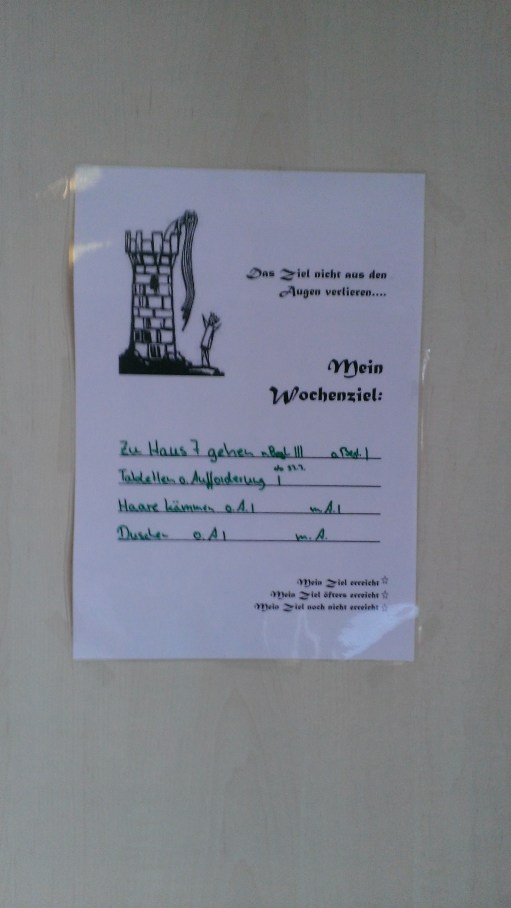 Das Ziel nicht aus den
Augen verlieren....
Mein
Wochenziel:
Zu Haus 7 gehen m. Begl. III o. Begl. I
Tabletten o. Aufforderung I
Haare kämmen o. A. I m. A. I
Duschen o. A I m. A.
Mein Ziel erreicht ☆
Mein Ziel öfters erreicht ☆
Mein Ziel noch nicht erreicht ☆